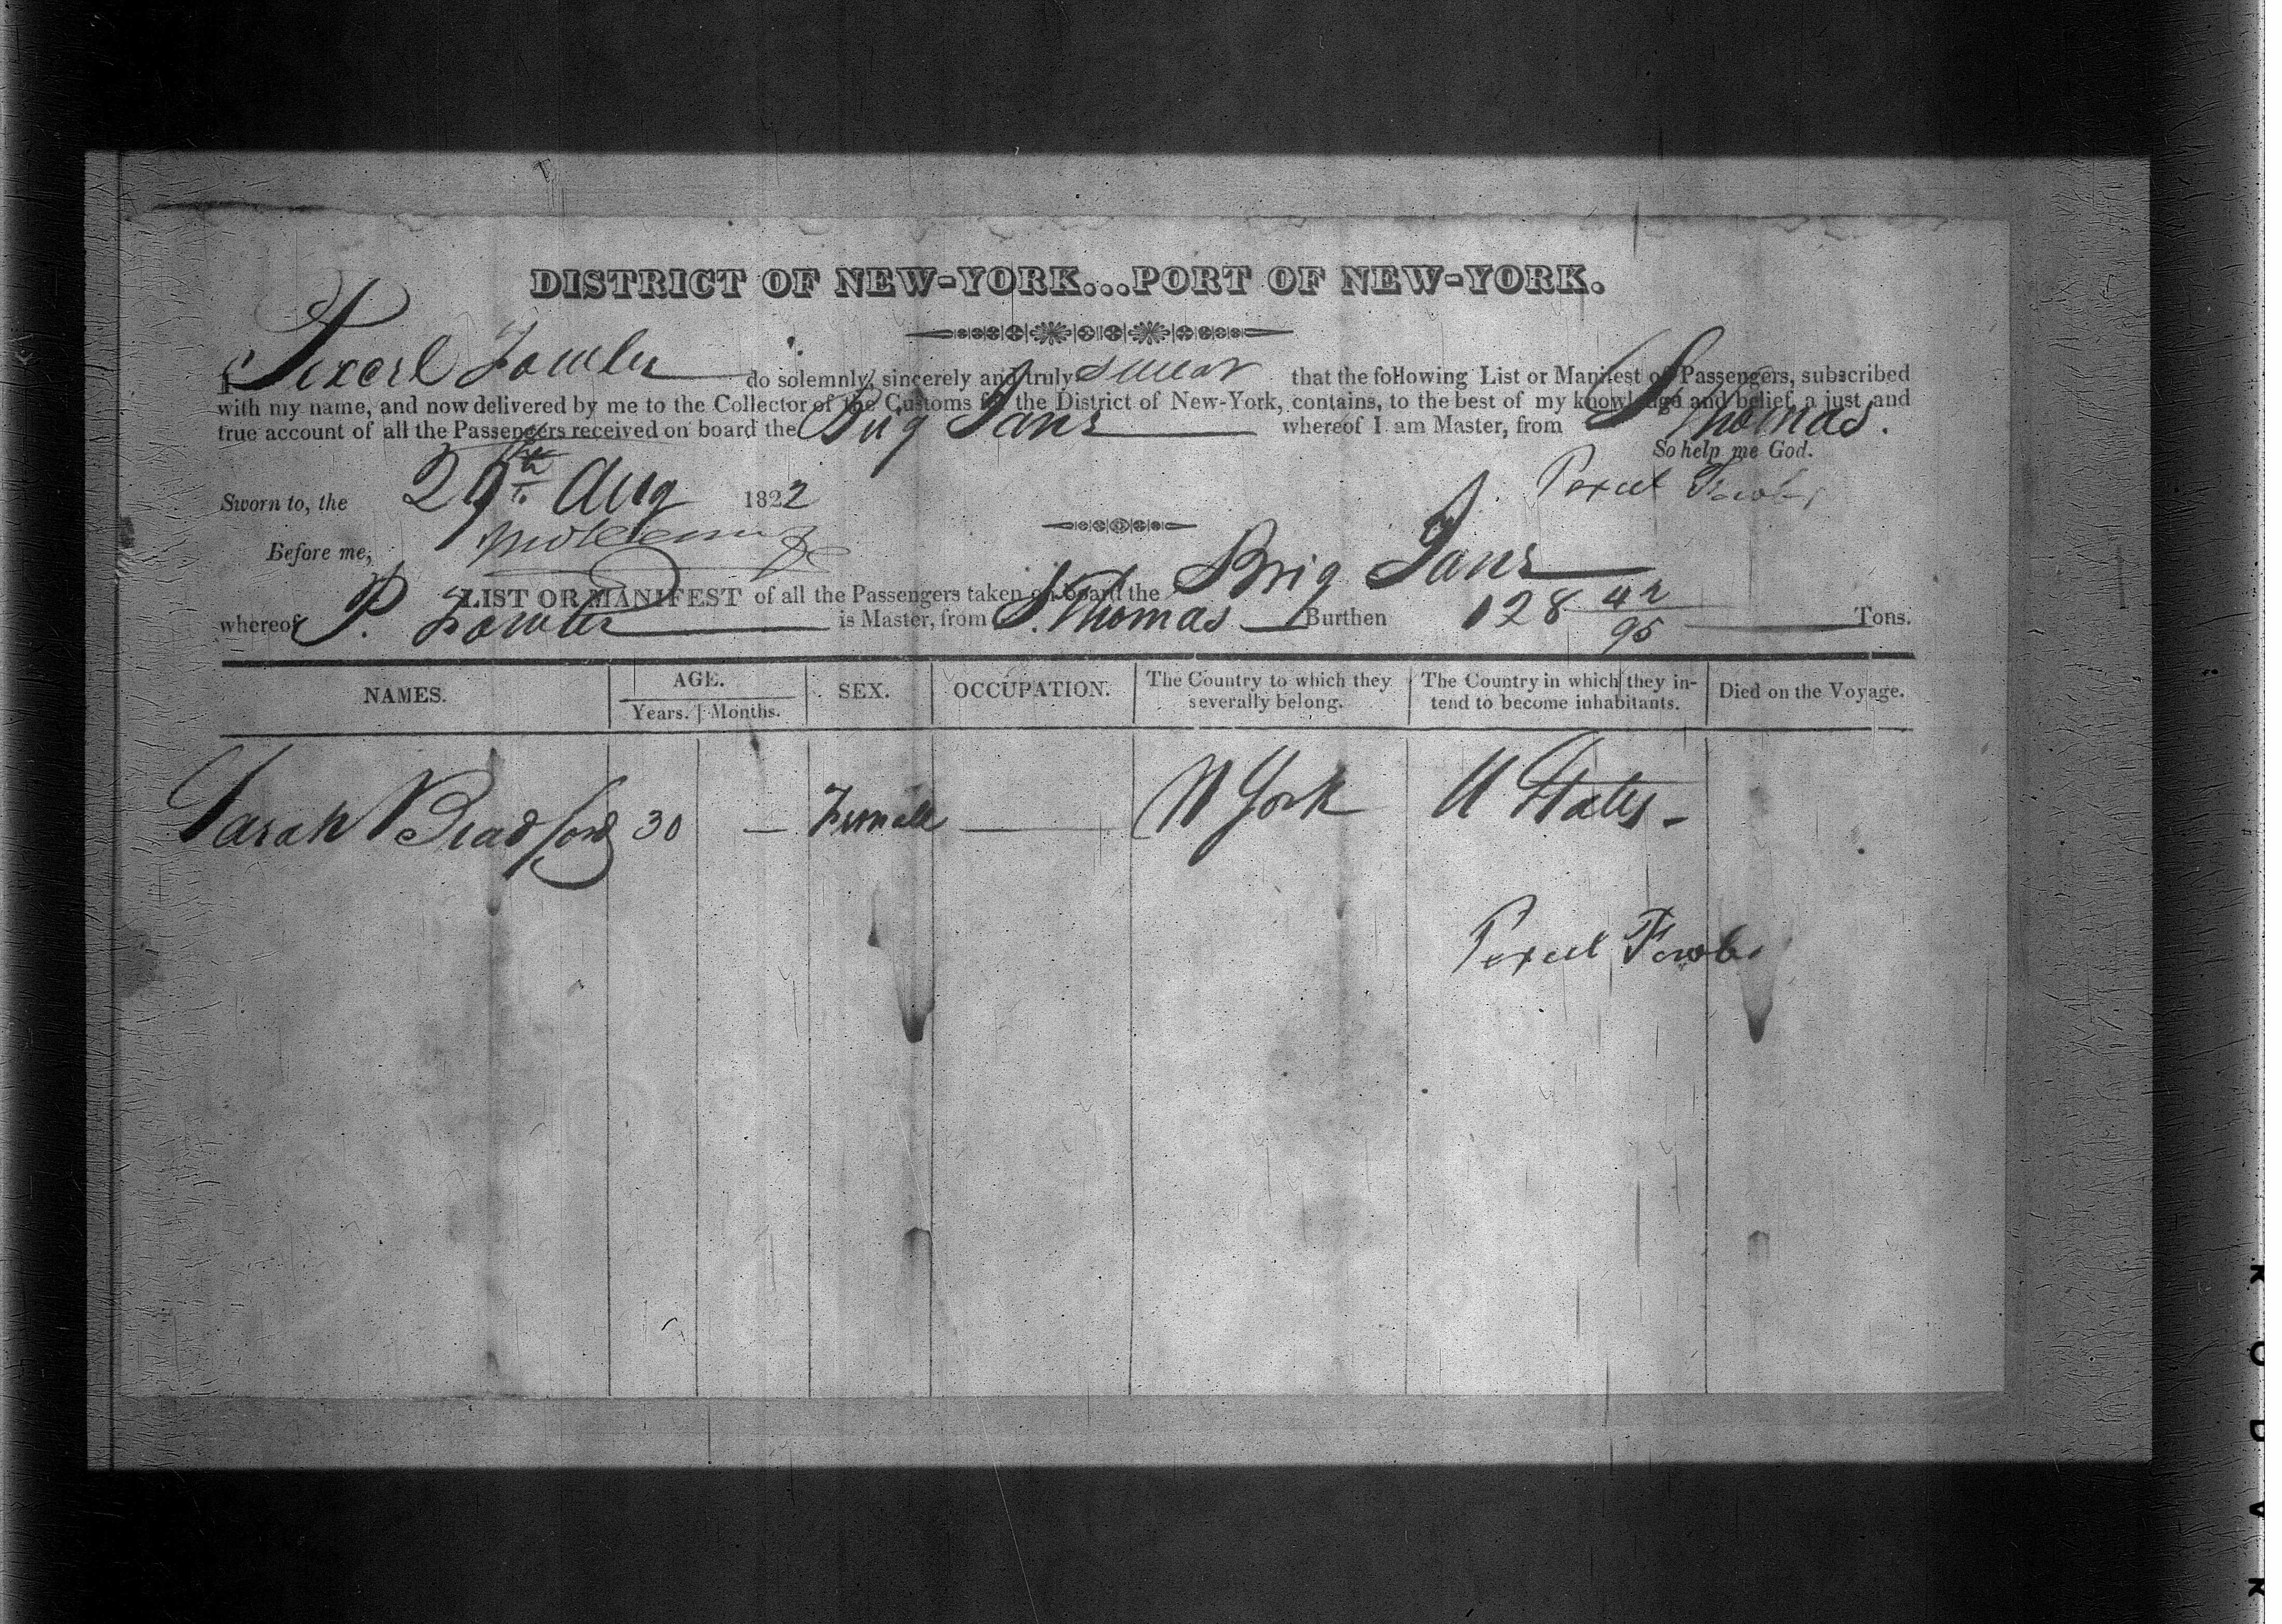 DISTRICT OF NEW-YORK...PORT OF NEW-YORK.
I Pexcel Fowler do solemnly, sincerely and truly swear that the following List or Manifest of Passengers, subscribed
with my name, and now delivered by me to the Collector of the Customs for the District of New-York, contains, to the best of my knowledge and belief, a just and
true account of all the Passengers received on board the Brig Jane whereof I am Master, from St Thomas.
So help me God.
Sworn to, the 29th Aug 1822
Pexcel Fowler
Before me,
LIST OR MANIFEST of all the Passengers taken on board the Brig Jane
whereof P. Fowler is Master, from St. Thomas Burthen 128 42/95 Tons.
NAMES. AGE. Years. Months. SEX. OCCUPATION. The Country to which they severally belong. The Country in which they intend to become inhabitants. Died on the Voyage.
Sarah Bradford 30 — Female — N York U States -
Pexcel Fowler
KODAK